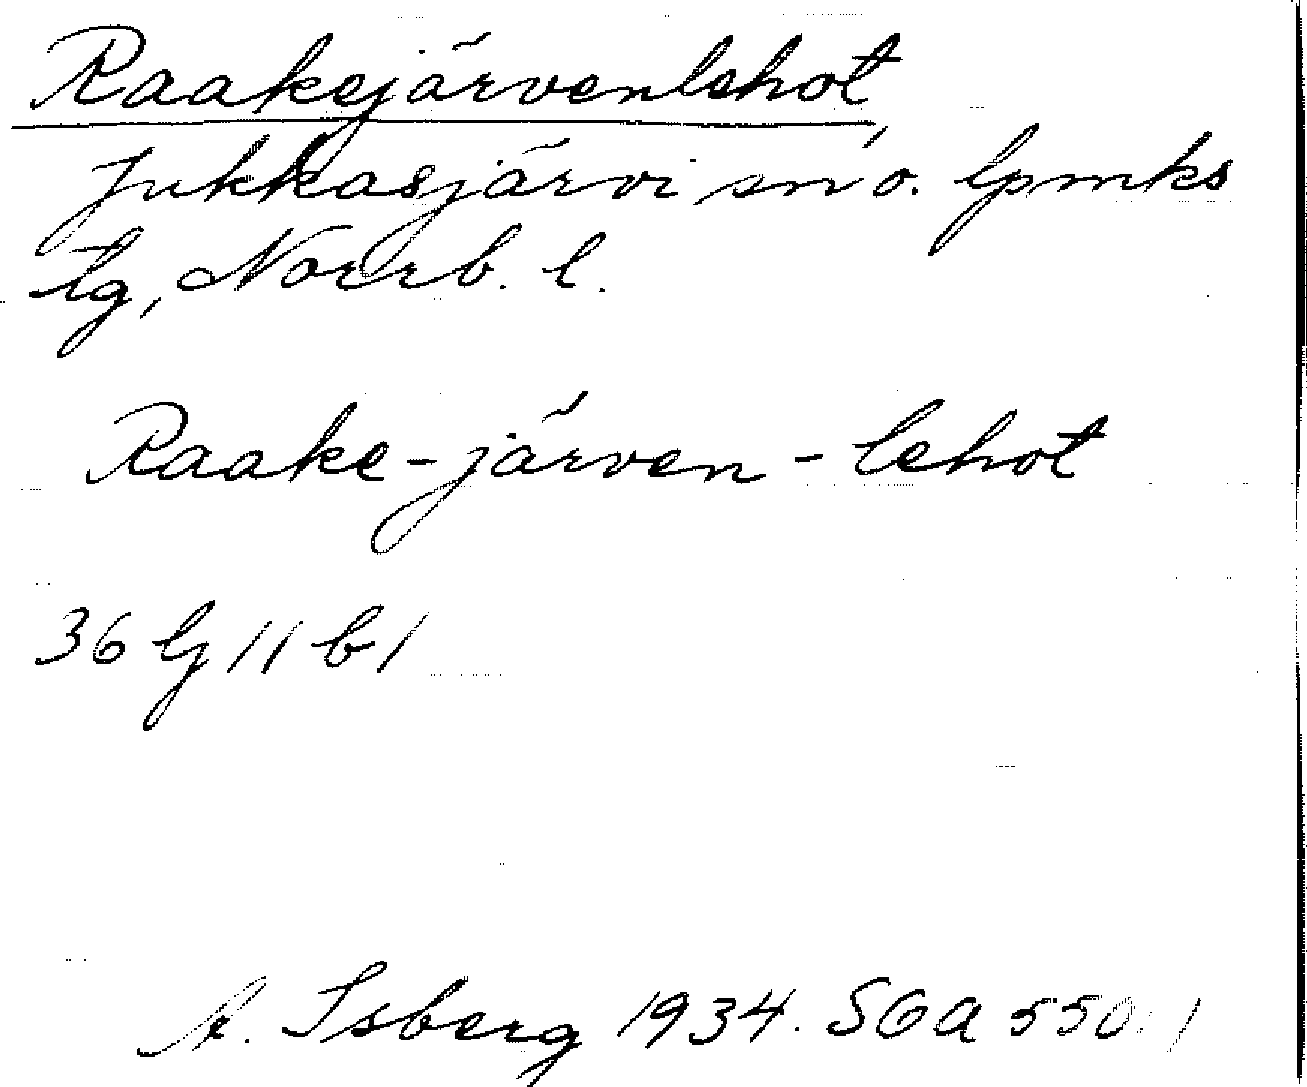 Raakejärvenlehot
Jukkasjärvi sn o. lpmks
tg, Norrb. l.
Raake-järven-lehot
36 lj 11 b 1
A. Isberg 1934. SGA 550:1